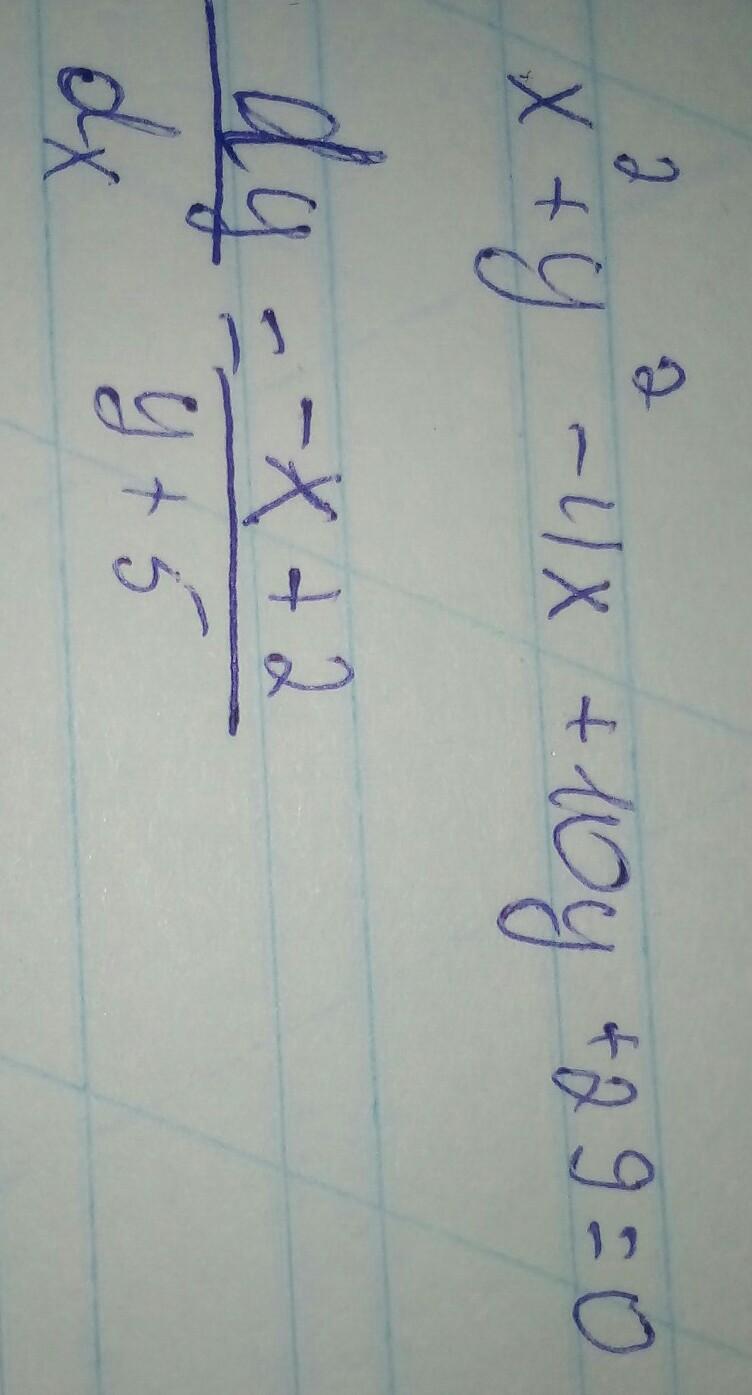 x² + y² - 4x + 10y + 29 = 0
dy/dx = (-x + 2)/(y + 5)